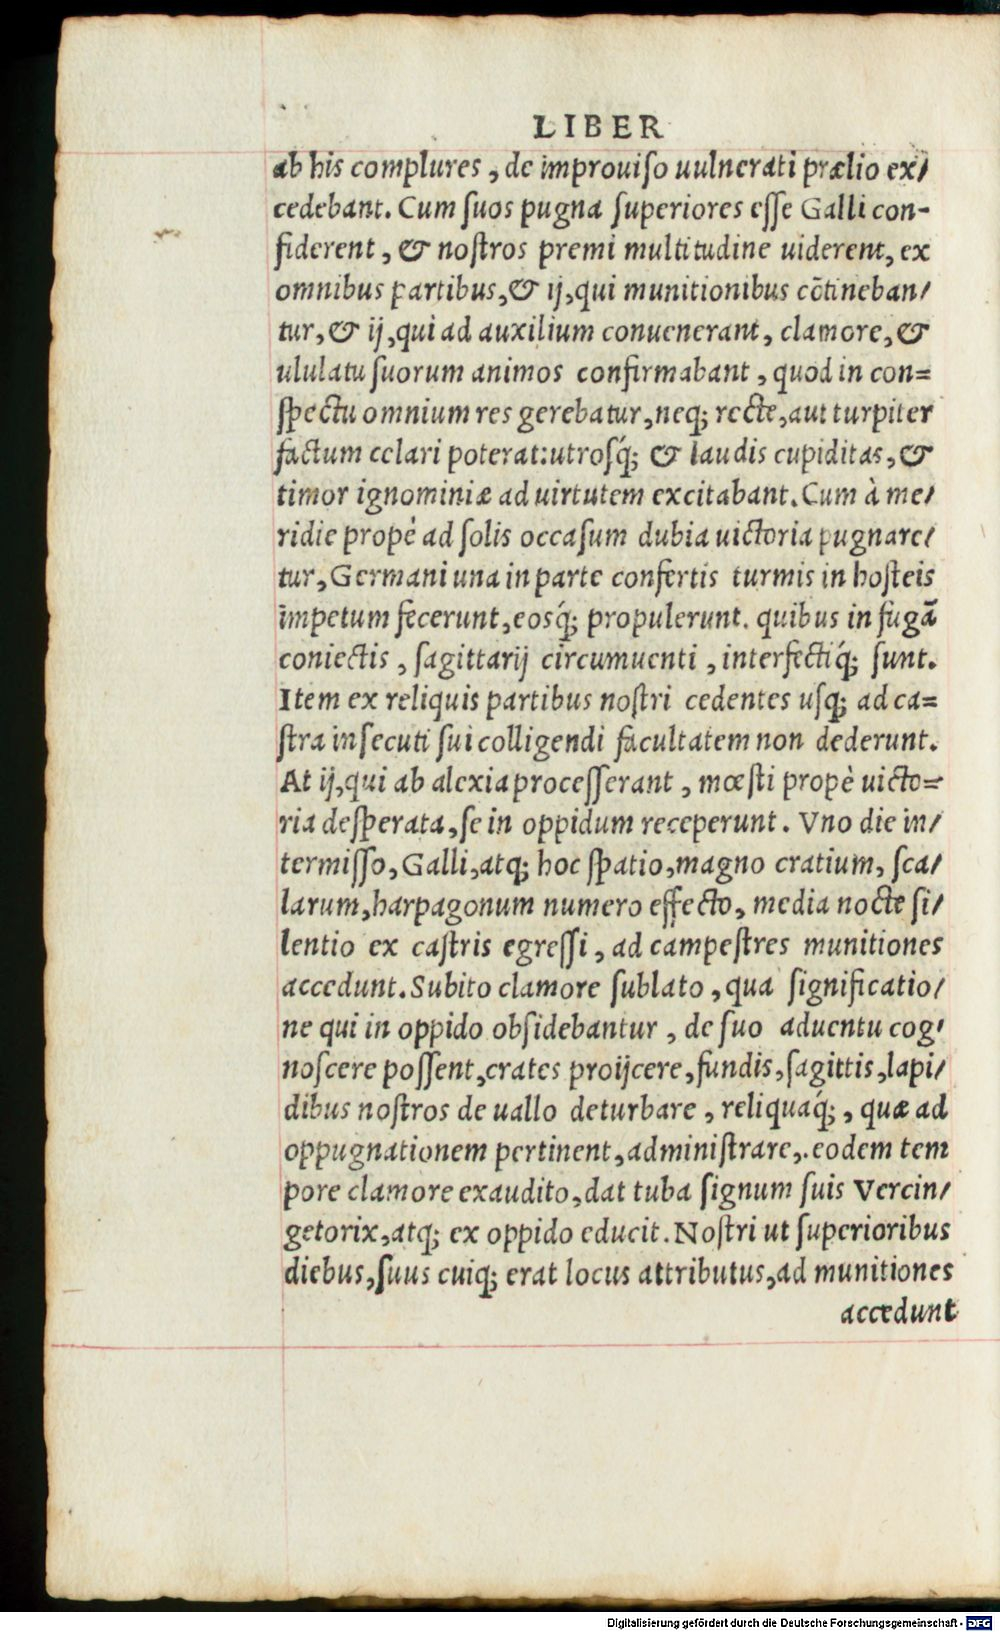 LIBER
ab his complures, de improuiſo uulnerati prælio ex/
cedebant. Cum ſuos pugna ſuperiores eſſe Galli con-
fiderent, & noſtros premi multitudine uiderent, ex
omnibus partibus, & ij, qui munitionibus cõtineban/
tur, & ij, qui ad auxilium conuenerant, clamore, &
ululatu ſuorum animos confirmabant, quod in con=
ſpectu omnium res gerebatur, neq; recte, aut turpiter
factum celari poterat: utroſq́; & laudis cupiditas, &
timor ignominiæ ad uirtutem excitabant. Cum à me/
ridie propè ad ſolis occaſum dubia uictoria pugnare/
tur, Germani una in parte confertis turmis in hoſteis
impetum fecerunt, eosq́; propulerunt. quibus in fugã
coniectis, ſagittarij circumuenti, interfectiq́; ſunt.
Item ex reliquis partibus noſtri cedentes uſq; ad ca=
ſtra inſecuti ſui colligendi facultatem non dederunt.
At ij, qui ab alexia proceſſerant, mœſti propè uicto=
ria deſperata, ſe in oppidum receperunt. Vno die in/
termiſſo, Galli, atq; hoc ſpatio, magno cratium, ſca/
larum, harpagonum numero effecto, media nocte ſi/
lentio ex caſtris egreſſi, ad campeſtres munitiones
accedunt. Subito clamore ſublato, qua ſignificatio/
ne qui in oppido obſidebantur, de ſuo aduentu cog/
noſcere poſſent, crates proijcere, fundis, ſagittis, lapi/
dibus noſtros de uallo deturbare, reliquaq́;, quæ ad
oppugnationem pertinent, adminiſtrare,. eodem tem
pore clamore exaudito, dat tuba ſignum ſuis Vercin/
getorix, atq; ex oppido educit. Noſtri ut ſuperioribus
diebus, ſuus cuiq; erat locus attributus, ad munitiones
accedunt
Digitalisierung gefördert durch die Deutsche Forschungsgemeinschaft - DFG